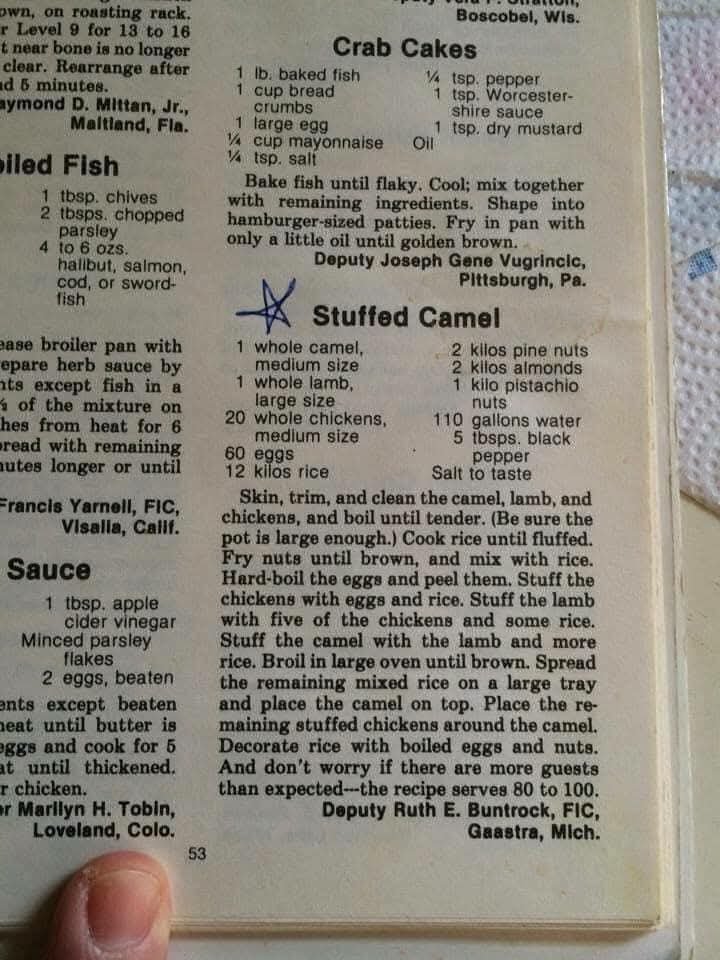 own, on roasting rack.
r Level 9 for 13 to 16
t near bone is no longer
clear. Rearrange after
nd 5 minutes.
aymond D. Mittan, Jr.,
Maitland, Fla.
oiled Fish
1 tbsp. chives
2 tbsps. chopped
parsley
4 to 6 ozs.
halibut, salmon,
cod, or sword-
fish
ease broiler pan with
epare herb sauce by
nts except fish in a
of the mixture on
hes from heat for 6
pread with remaining
nutes longer or until
Francis Yarnell, FIC,
Visalia, Calif.
Sauce
1 tbsp. apple
cider vinegar
Minced parsley
flakes
2 eggs, beaten
ents except beaten
heat until butter is
eggs and cook for 5
at until thickened.
r chicken.
or Marilyn H. Tobin,
Loveland, Colo.
53
Boscobel, Wis.
Crab Cakes
1 lb. baked fish
1 cup bread
crumbs
1 large egg
¼ cup mayonnaise
¼ tsp. salt
¼ tsp. pepper
1 tsp. Worcester-
shire sauce
1 tsp. dry mustard
Oil
Bake fish until flaky. Cool; mix together
with remaining ingredients. Shape into
hamburger-sized patties. Fry in pan with
only a little oil until golden brown.
Deputy Joseph Gene Vugrincic,
Pittsburgh, Pa.
Stuffed Camel
1 whole camel,
medium size
1 whole lamb,
large size
20 whole chickens,
medium size
60 eggs
12 kilos rice
2 kilos pine nuts
2 kilos almonds
1 kilo pistachio
nuts
110 gallons water
5 tbsps. black
pepper
Salt to taste
Skin, trim, and clean the camel, lamb, and
chickens, and boil until tender. (Be sure the
pot is large enough.) Cook rice until fluffed.
Fry nuts until brown, and mix with rice.
Hard-boil the eggs and peel them. Stuff the
chickens with eggs and rice. Stuff the lamb
with five of the chickens and some rice.
Stuff the camel with the lamb and more
rice. Broil in large oven until brown. Spread
the remaining mixed rice on a large tray
and place the camel on top. Place the re-
maining stuffed chickens around the camel.
Decorate rice with boiled eggs and nuts.
And don't worry if there are more guests
than expected---the recipe serves 80 to 100.
Deputy Ruth E. Buntrock, FIC,
Gaastra, Mich.